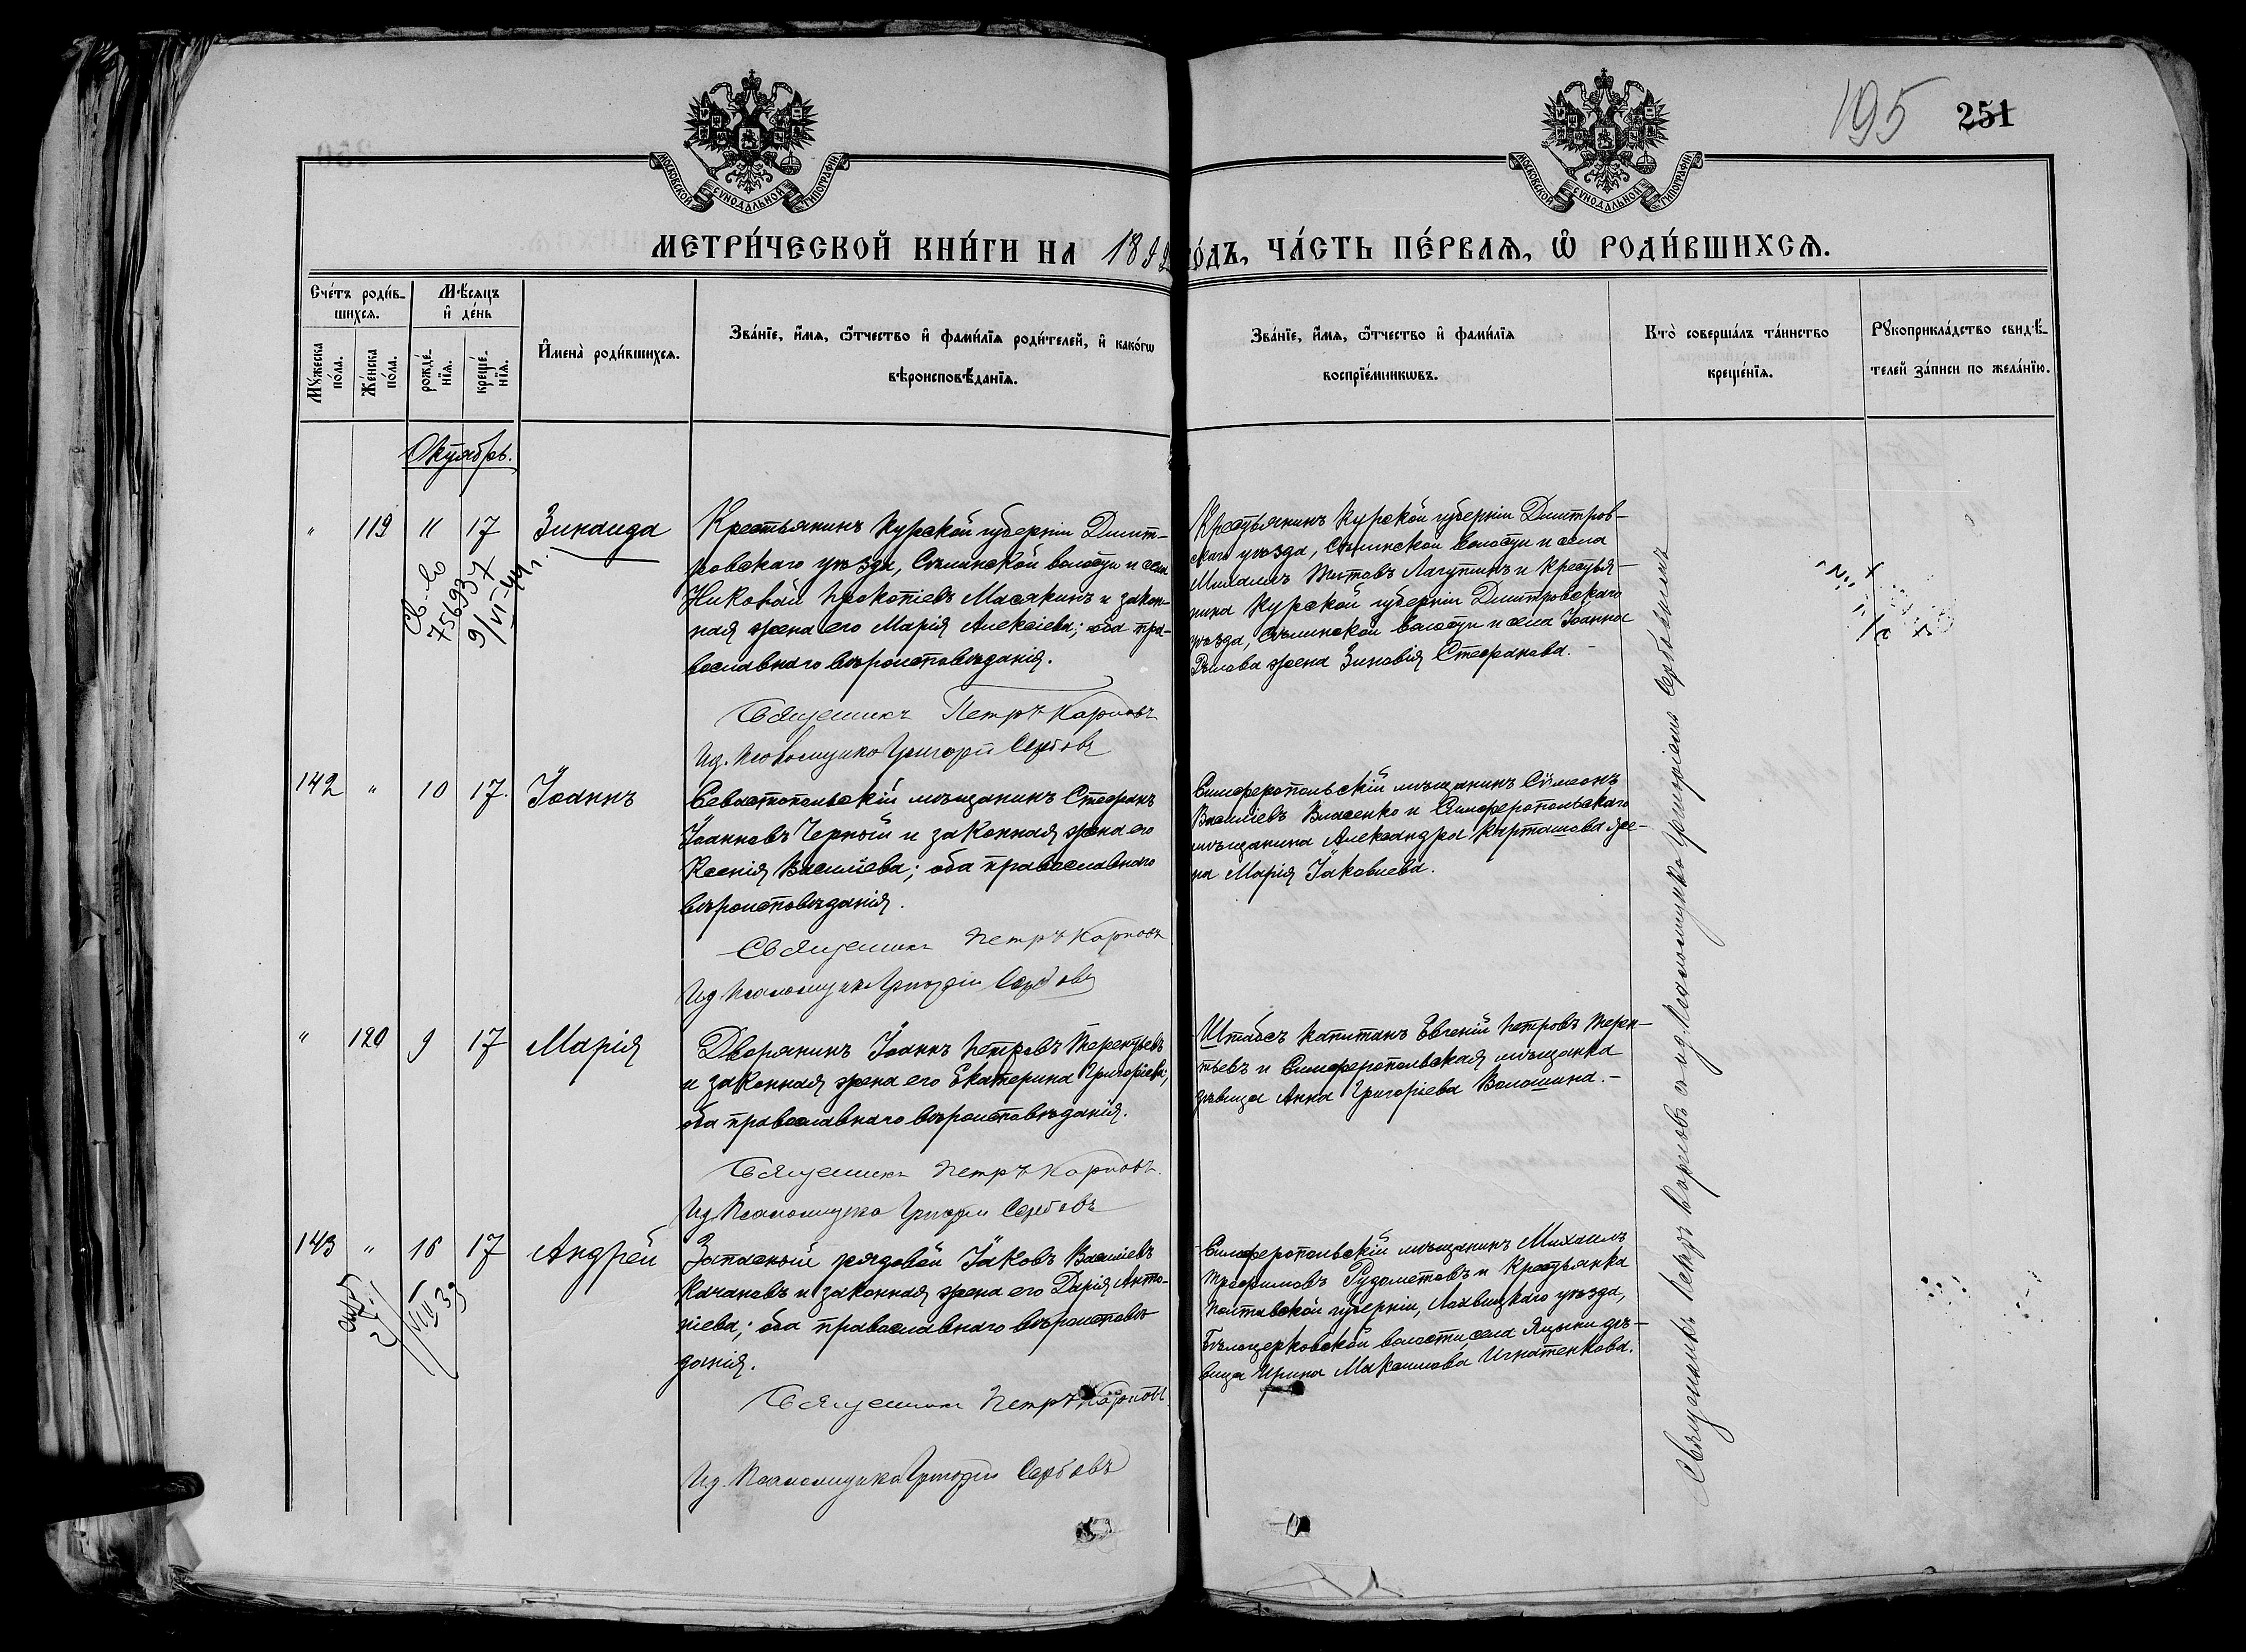 195 251
МОСКОВСКОЙ СѴНОДАЛЬНОЙ ТИПОГРАФІИ
МОСКОВСКОЙ СѴНОДАЛЬНОЙ ТИПОГРАФІИ
МЕТРИ́ЧЕСКОЙ КНИ́ГИ НА 1892 ГО́ДЪ, ЧА́СТЬ ПЕ́РВАѦ, Ѡ҆ РОДИ́ВШИХСѦ.
Сче́тъ роди́в-
шихсѧ.
Мꙋ́жеска по́ла.
Же́нска по́ла.
Мѣ́сѧцъ и҆ де́нь
рожде́-нїѧ.
креще́-нїѧ.
И҆мена̀ роди́вшихсѧ.
Зва́нїе, и҆́мѧ, ѻ҆́тчество и҆ фами́лїѧ роди́телей, и҆ како́гѡ
вѣроисповѣ́данїѧ.
Зва́нїе, и҆́мѧ, ѻ҆́тчество и҆ фами́лїѧ
воспрїе́мникѡвъ.
Кто̀ соверша́лъ та́инство
креще́нїѧ.
Рꙋкоприкла́дство свидѣ́-
телей за́писи по жела́нїю.
Октябрь.
" 119 11 17 Зинаида
Св-во
756937
9/VI-44 г.
Крестьянинъ Курской губерніи Дмит-
ровскаго уѣзда, волости и села
Николай Прокопіевъ Масакинъ и закон-
ная жена его Марія Алексіева; оба пра-
вославнаго вѣроисповѣданія.
Священникъ Петръ Карповъ
Ид. Псаломщика Григорій Сербовъ
Крестьянинъ Курской губерніи Дмитров-
скаго уѣзда, волости и села
Михаилъ Титовъ Лагутинъ и крестья-
нина Курской губерніи Дмитровскаго
уѣзда, волости и села Іоанна
жена Зиновія Стефанова.-
142 " 10 17. Іоаннъ
Севастопольскій мѣщанинъ Стефанъ
Іоанновъ Черный и законная жена его
Ксенія Василіева; оба православнаго
вѣроисповѣданія.
Священникъ Петръ Карповъ
Ид. Псаломщика Григорій Сербовъ
Симферопольскій мѣщанинъ Сѵмеонъ
Василіевъ Власенко и Симферопольскаго
мѣщанина Александра Карташова же-
на Марія Іаковлева.
" 120 9 17 Марія
Дворянинъ Іоаннъ Петровъ Терентьевъ
и законная жена его Екатерина Григоріева;
оба православнаго вѣроисповѣданія.
Священникъ Петръ Карповъ.
Ид. Псаломщика Григорій Сербовъ
Штабсъ Капитанъ Евгеній Петровъ Терен-
тьевъ и Симферопольская мѣщанка
дѣвица Анна Григоріева Волошина.-
143 " 16 17 Андрей
VIII 39
Запасный рядовой Іаковъ Василіевъ
Качановъ и законная жена его Дарія Анто-
ніева; оба православнаго вѣроисповѣ-
данія.
Священникъ Петръ Карповъ
Ид. Псаломщика Григорій Сербовъ
Симферопольскій мѣщанинъ Михаилъ
Трофимовъ Рудометовъ и крестьянка
Полтавской губерніи, Лохвицкаго уѣзда,
Бѣлоцерковской волости села Яцыни дѣ-
вица Ирина Максимова Игнатенкова.
Священникъ Петръ Карповъ и ид. Псаломщика Григоріемъ Сербовымъ